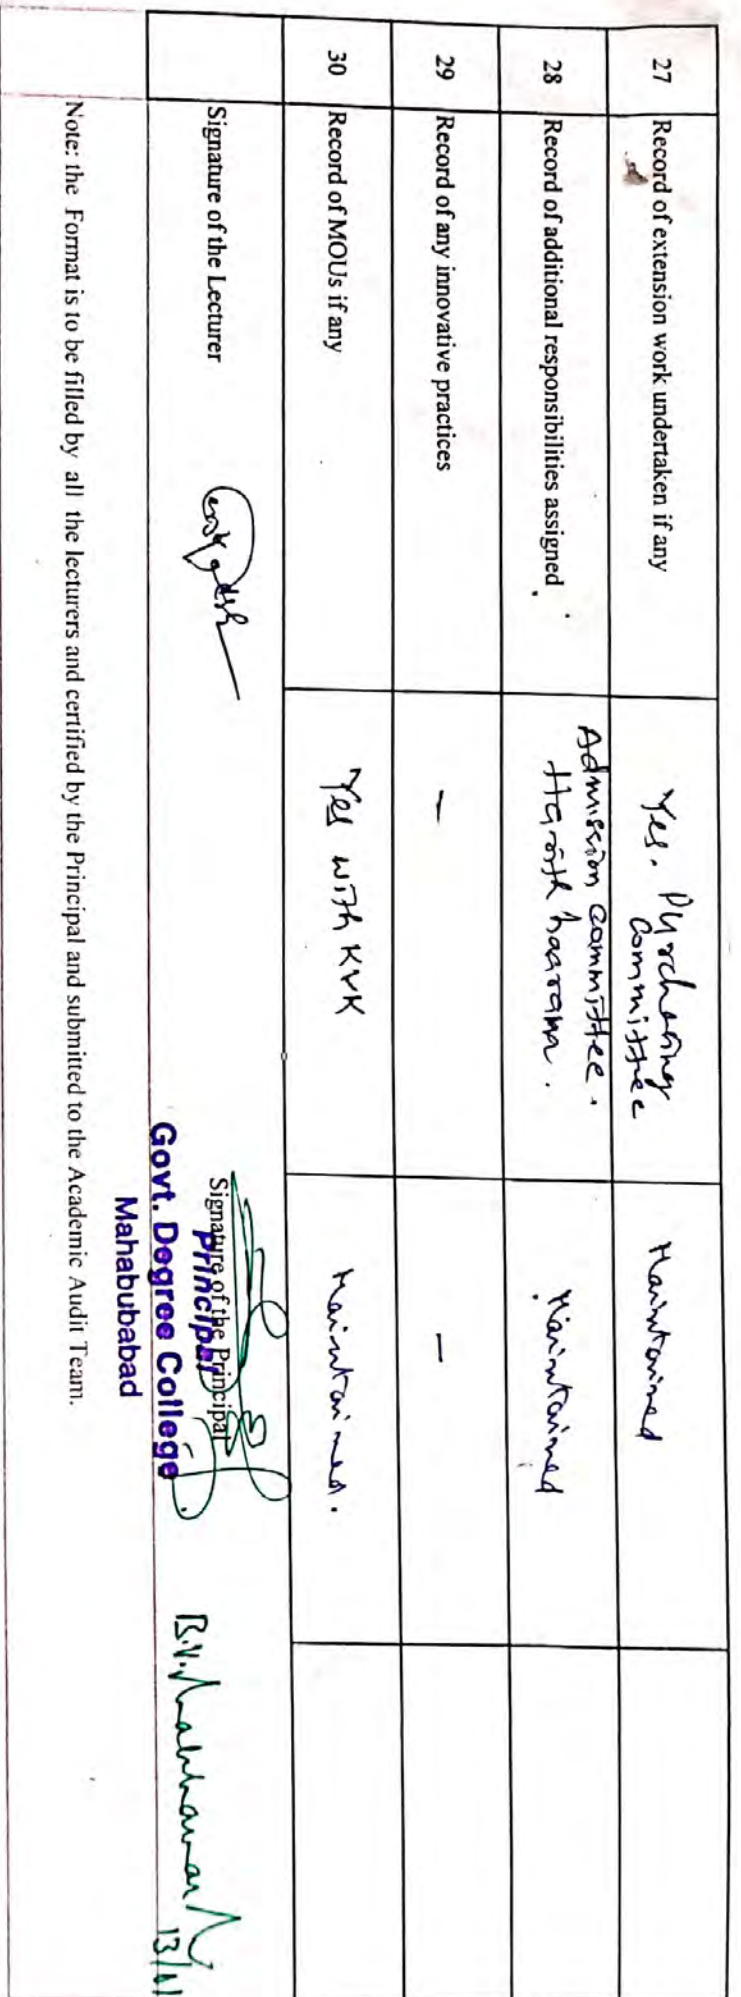 27 Record of extension work undertaken if any Yes. Purchasing Committee Maintained
28 Record of additional responsibilities assigned Admission committee. Maintained
Haarana.
29 Record of any innovative practices — —
30 Record of MOUs if any Yes with KVK Maintained.
Signature of the Lecturer Signature of the Principal
Principal
Govt. Degree College
Mahabubabad
13/11
Note: the Format is to be filled by all the lecturers and certified by the Principal and submitted to the Academic Audit Team.